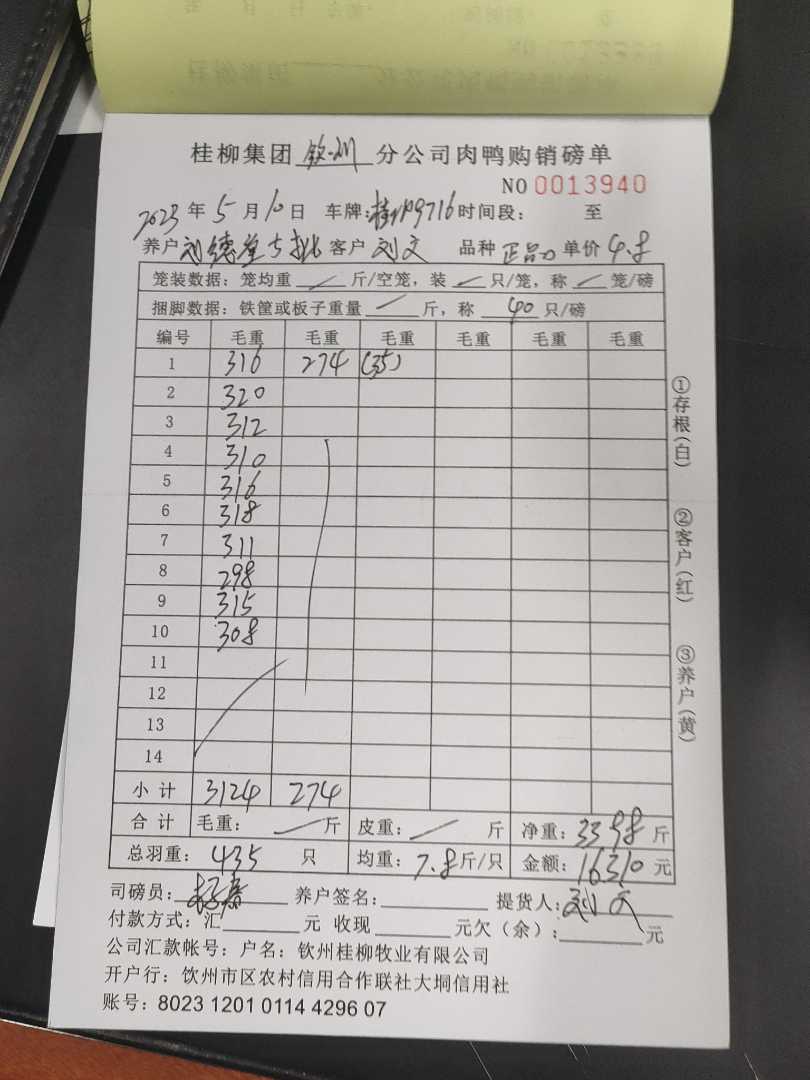 桂柳集团 钦州 分公司肉鸭购销磅单
NO 0013940
2023 年 5 月 10 日 车牌: 9716 时间段: 至
养户 刘德 客户 刘文 品种 正品 单价 4.8
笼装数据: 笼均重 / 斤/空笼, 装 / 只/笼, 称 / 笼/磅
捆脚数据: 铁筐或板子重量 / 斤, 称 40 只/磅
编号 毛重 毛重 毛重 毛重 毛重 毛重
1 316 274 (35)
2 320
3 312
4 310
5 316
6 318
7 311
8 298
9 315
10 308
11
12
13
14
小计 3124 274
合计 毛重: / 斤 皮重: / 斤 净重: 3398 斤
总羽重: 435 只 均重: 7.8 斤/只 金额: 16310 元
司磅员: 养户签名: 提货人: 刘文
付款方式: 汇 元 收现 元欠(余): 元
公司汇款帐号: 户名: 钦州桂柳牧业有限公司
开户行: 饮州市区农村信用合作联社大垌信用社
账号: 8023 1201 0114 4296 07
①存根(白)
②客户(红)
③养户(黄)